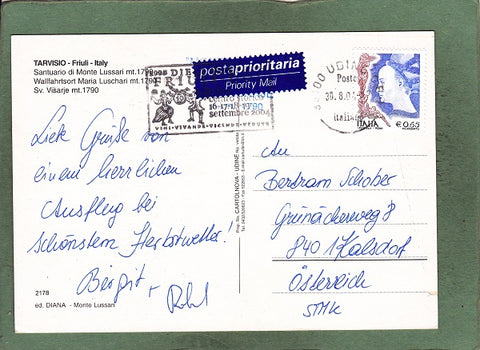 TARVISIO - Friuli - Italy
Santuario di Monte Lussari mt.1790
Wallfahrtsort Maria Luschari mt.1790
Sv. Višarje mt.1790
postaprioritaria
Priority Mail
settembre 2004
VINI-VIVANDE-VICENDE-VEDUTE
UDINE
Poste
30.8.0
italiane
ITALIA
€0,65
Liebe Grüße von
einem herrlichen
Ausflug bei
schönstem Herbstwetter!
Birgit +
An
Bertram Schober
Grünäckerweg 8
8401 Kalsdorf
Österreich
STMK
CARTOLNOVA - UDINE
2178
ed. DIANA - Monte Lussari